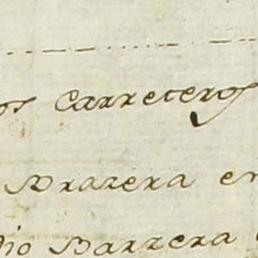 os Carreteros
Brarera en
dio Barrera